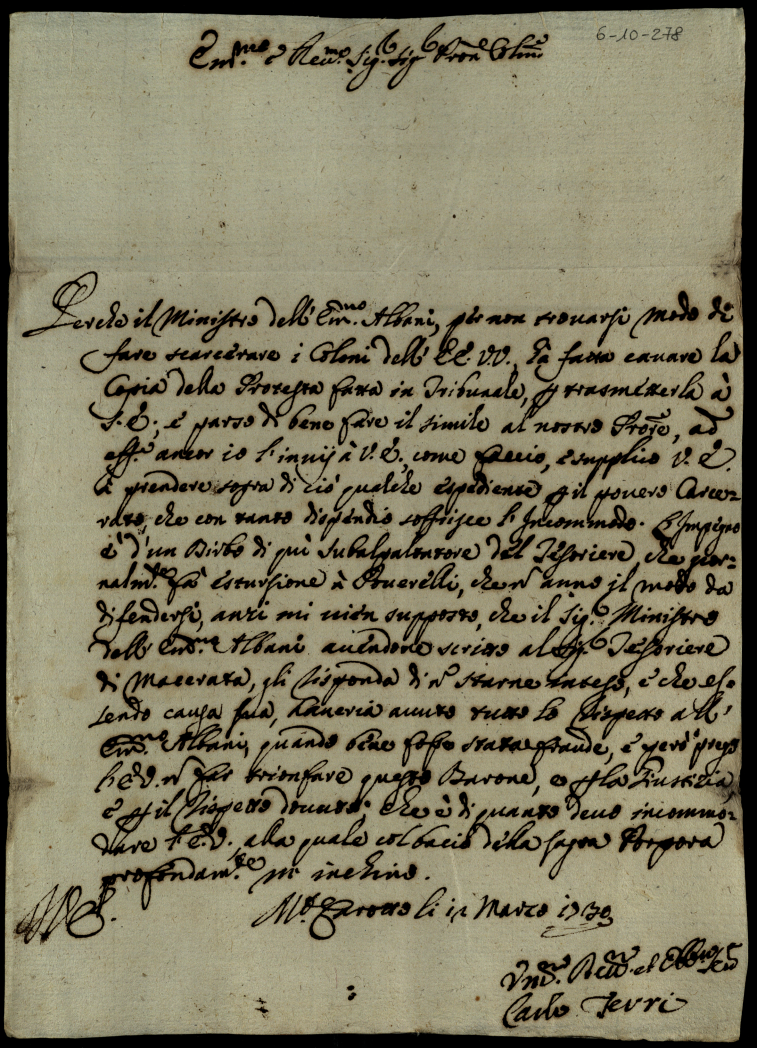 6-10-278
Em.mo e Rev.mo Sig. Sig. Pron Colmo
Perche il Ministro dell' Em.mo Albani, per non trovarsi modo di
fare scarcerare i Coloni dell' EE. VV., fà fatta cavare la
Copia della Protesta fatta in Tribunale, p trasmetterla à
S. E.; e parso di bene fare il simile al nostro Prore, ad
eff.o ancor io l'invij à V. E. come faccio, e supplico V. E.
à prendere sopra di ciò qualche espediente p il povero Carce=
rato, che con tanto dispendio soffrisce l'Incommodo. L'Impegno
è d'un Birbo di quì del Tesoriere che gior=
nalm.te fà escursione à Poverelli, che nò anno il modo da
difendersi, anzi mi vien supposto, che il Sig. Ministro
dell' Em.mo Albani avendone scritto al Sig. Tesoriere
di Macerata, gli risponda di nò starne inteso, e che es=
sendo causa sua, haveria avuto tutto lo rispetto all'
Em.mo Albani, quando bene fosse stata fraude, e però prego
l'E. V. nò far trionfare questo Barone, e p la Giustizia,
e p il rispetto dovuto; che è di quanto devo incommo=
dare l'E. V. alla quale col bacio della sagra Porpora
profondam.te m' inchino.
M.te Carotto li 12 Marzo 1730
Vmo. Devmo. et Obbmo Serv
Carlo Terri